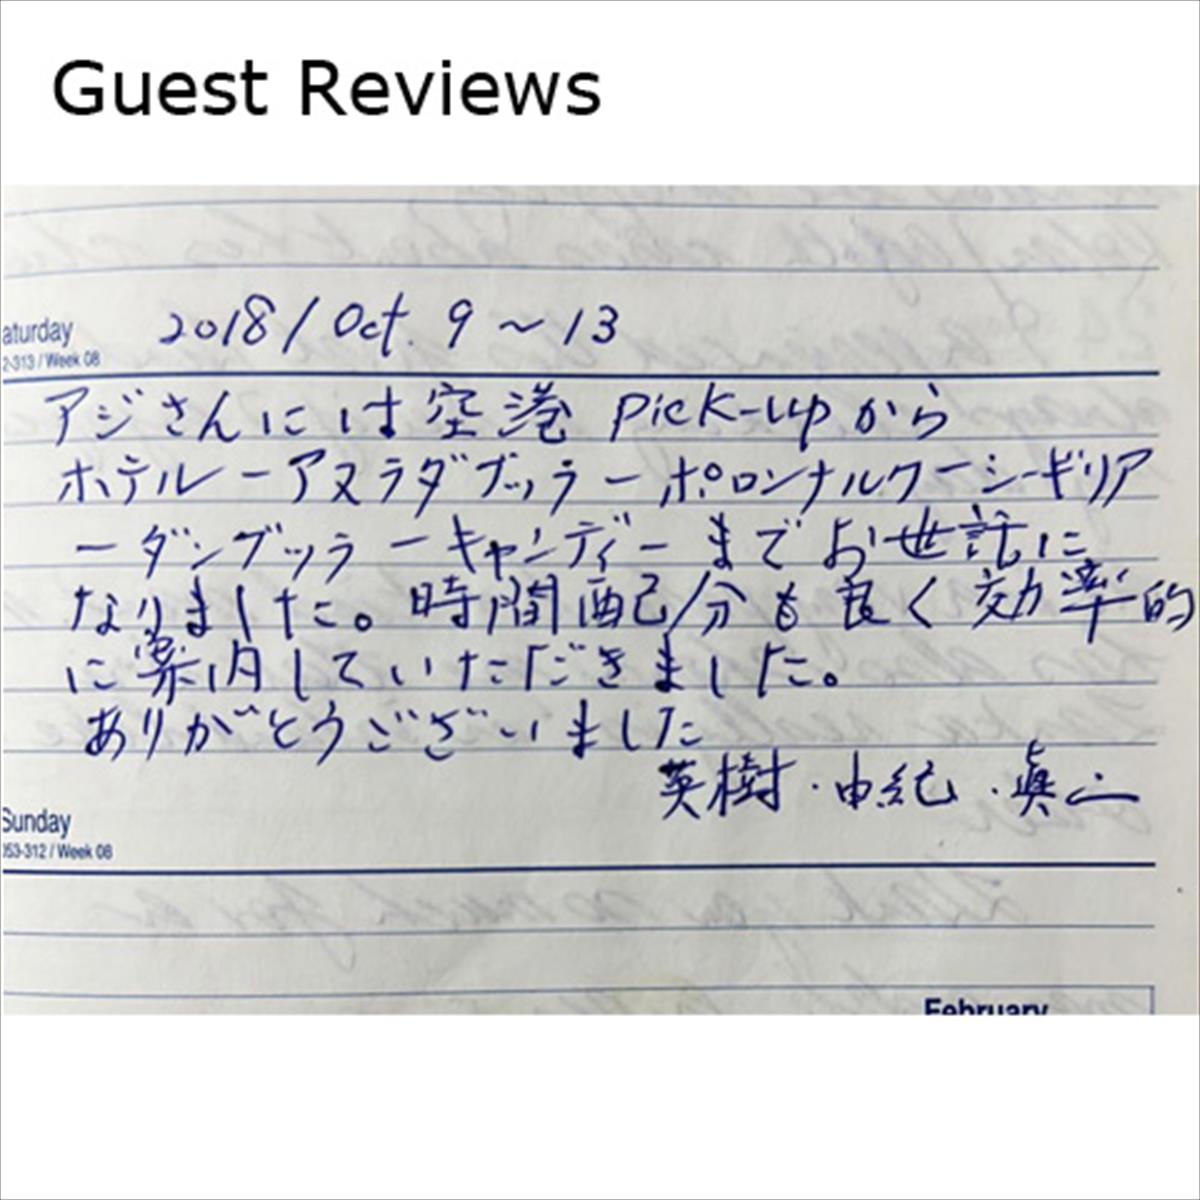 Guest Reviews
aturday
2-313 / Week 08
2018 / Oct. 9 ～ 13
アジさんには空港 pick-upから
ホテルーアヌラダブッラーポロンナルワーシーギリア
ーダンブッラーキャンディーまでお世話に
なりました。時間配分も良く効率的
に案内していただきました。
ありがとうございました
英樹・由紀・眞二
Sunday
053-312 / Week 08
February